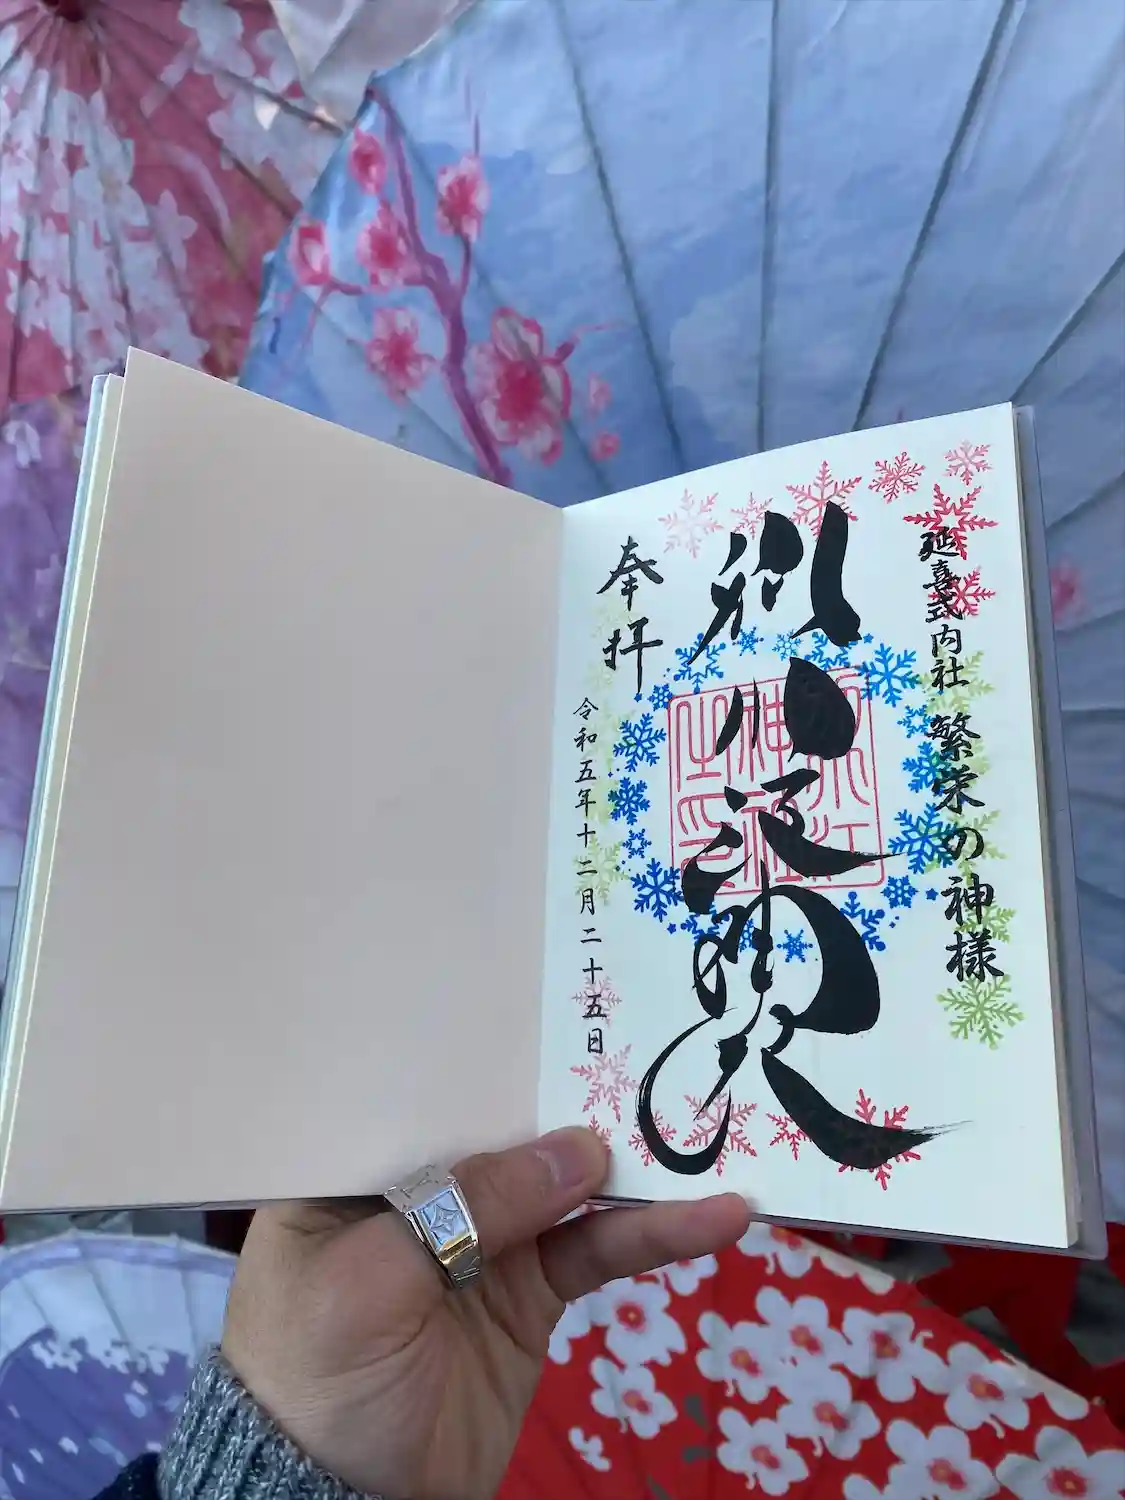 延喜式内社 繁栄の神様
別小江神社
奉拝
令和五年十二月二十五日